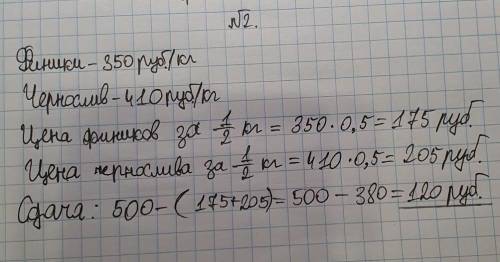 №2.
Финики – 350 руб./кг
Чернослив – 410 руб/кг
Цена фиников за 1/2 кг = 350 · 0,5 = 175 руб.
Цена чернослива за 1/2 кг = 410 · 0,5 = 205 руб.
Сдача: 500 – (175+205) = 500 – 380 = 120 руб.